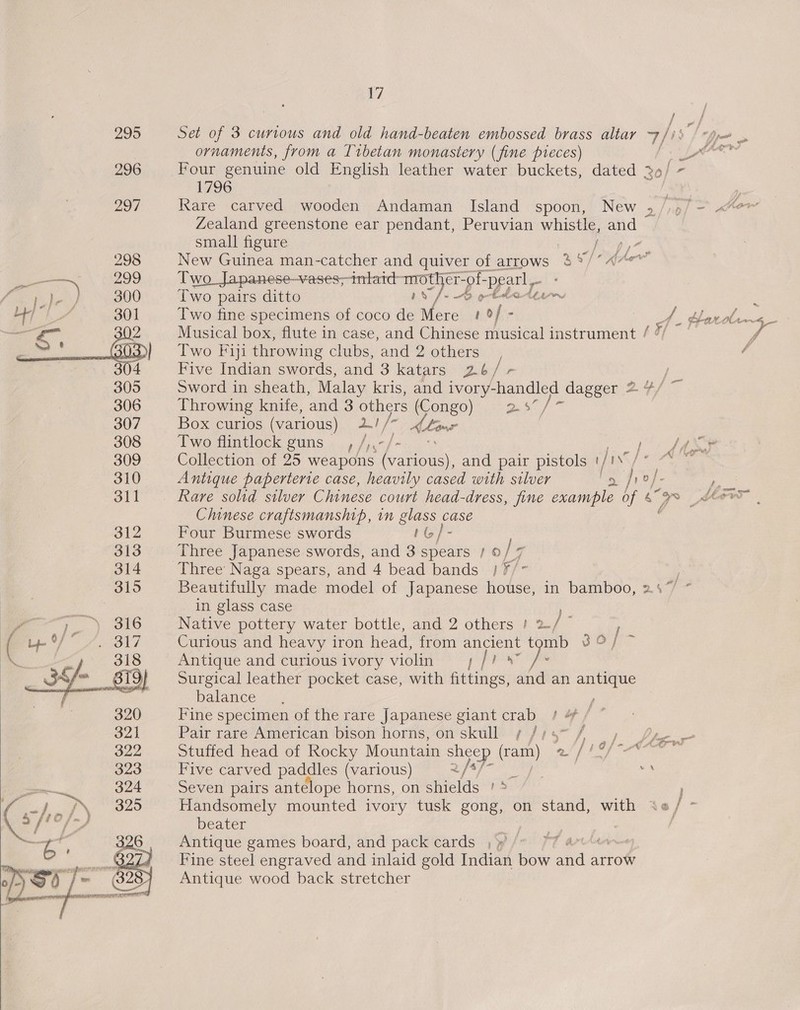 17
295 Set of 3 curious and old hand-beaten embossed brass altar
ornaments, from a Tibetan monastery (fine pieces)
296 Four genuine old English leather water buckets, dated 30/-
1796
297 Rare carved wooden Andaman Island spoon, New
Zealand greenstone ear pendant, Peruvian whistle, and
small figure
298 New Guinea man-catcher and quiver of arrows
299 Two Japanese vases, inlaid mother-of-pearl
300 Two pairs ditto
301 Two fine specimens of coco de Mere 10/-
302 Musical box, flute in case, and Chinese musical instrument
303 Two Fiji throwing clubs, and 2 others
304 Five Indian swords, and 3 katars 26/-
305 Sword in sheath, Malay kris, and ivory-handled dagger 24/-
306 Throwing knife, and 3 others (Congo) 25/-
307 Box curios (various) 21/-
308 Two flintlock guns
309 Collection of 25 weapons (various), and pair pistols
310 Antique paperterie case, heavily cased with silver
311 Rare solid silver Chinese court head-dress, fine example of
Chinese craftsmanship, in glass case
312 Four Burmese swords 16/-
313 Three Japanese swords, and 3 spears
314 Three Naga spears, and 4 bead bands
315 Beautifully made model of Japanese house, in bamboo, 25/-
in glass case
316 Native pottery water bottle, and 2 others 12/-
317 Curious and heavy iron head, from ancient tomb 30/-
318 Antique and curious ivory violin
319 Surgical leather pocket case, with fittings, and an antique
balance
320 Fine specimen of the rare Japanese giant crab
321 Pair rare American bison horns, on skull
322 Stuffed head of Rocky Mountain sheep (ram)
323 Five carved paddles (various)
324 Seven pairs antelope horns, on shields
325 Handsomely mounted ivory tusk gong, on stand, with
beater
326 Antique games board, and pack cards
327 Fine steel engraved and inlaid gold Indian bow and arrow
328 Antique wood back stretcher